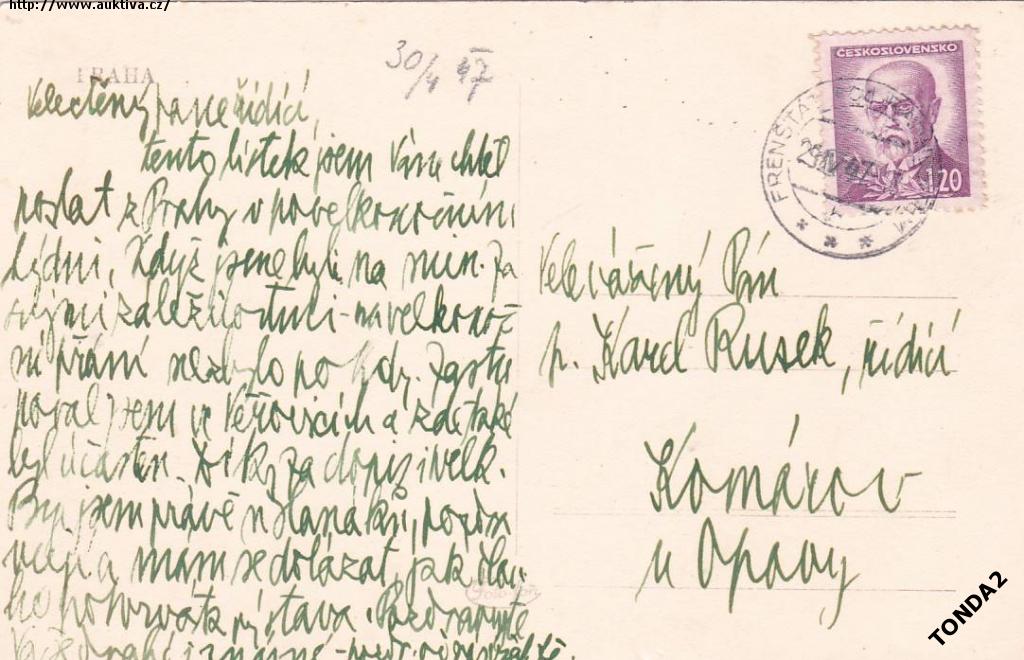 http://www.auktiva.cz/
PRAHA
30/4 47
Velectěný pane řídící,
tento lístek jsem Vám chtěl
poslat z Prahy v povelkonočním
týdni, když jsme byli na min. za
svými záležitostmi - na velkonoč-
ní přání nezbylo po kdy. Zastu
poval jsem ve Veřovicích a zde také
byl účasten. Dík za dopis i velk.
Byl jsem právě u Hanáků, pozdra
vují a mám se dotázat, jak dlou
ho potrvá výstava. Pozdravujte
ČESKOSLOVENSKO
1,20
FRENŠTÁT
29.IV.47
Velevážený Pán
p. Karel Rusek, řídící
Komárov
u Opavy
Fototon
TONDA2